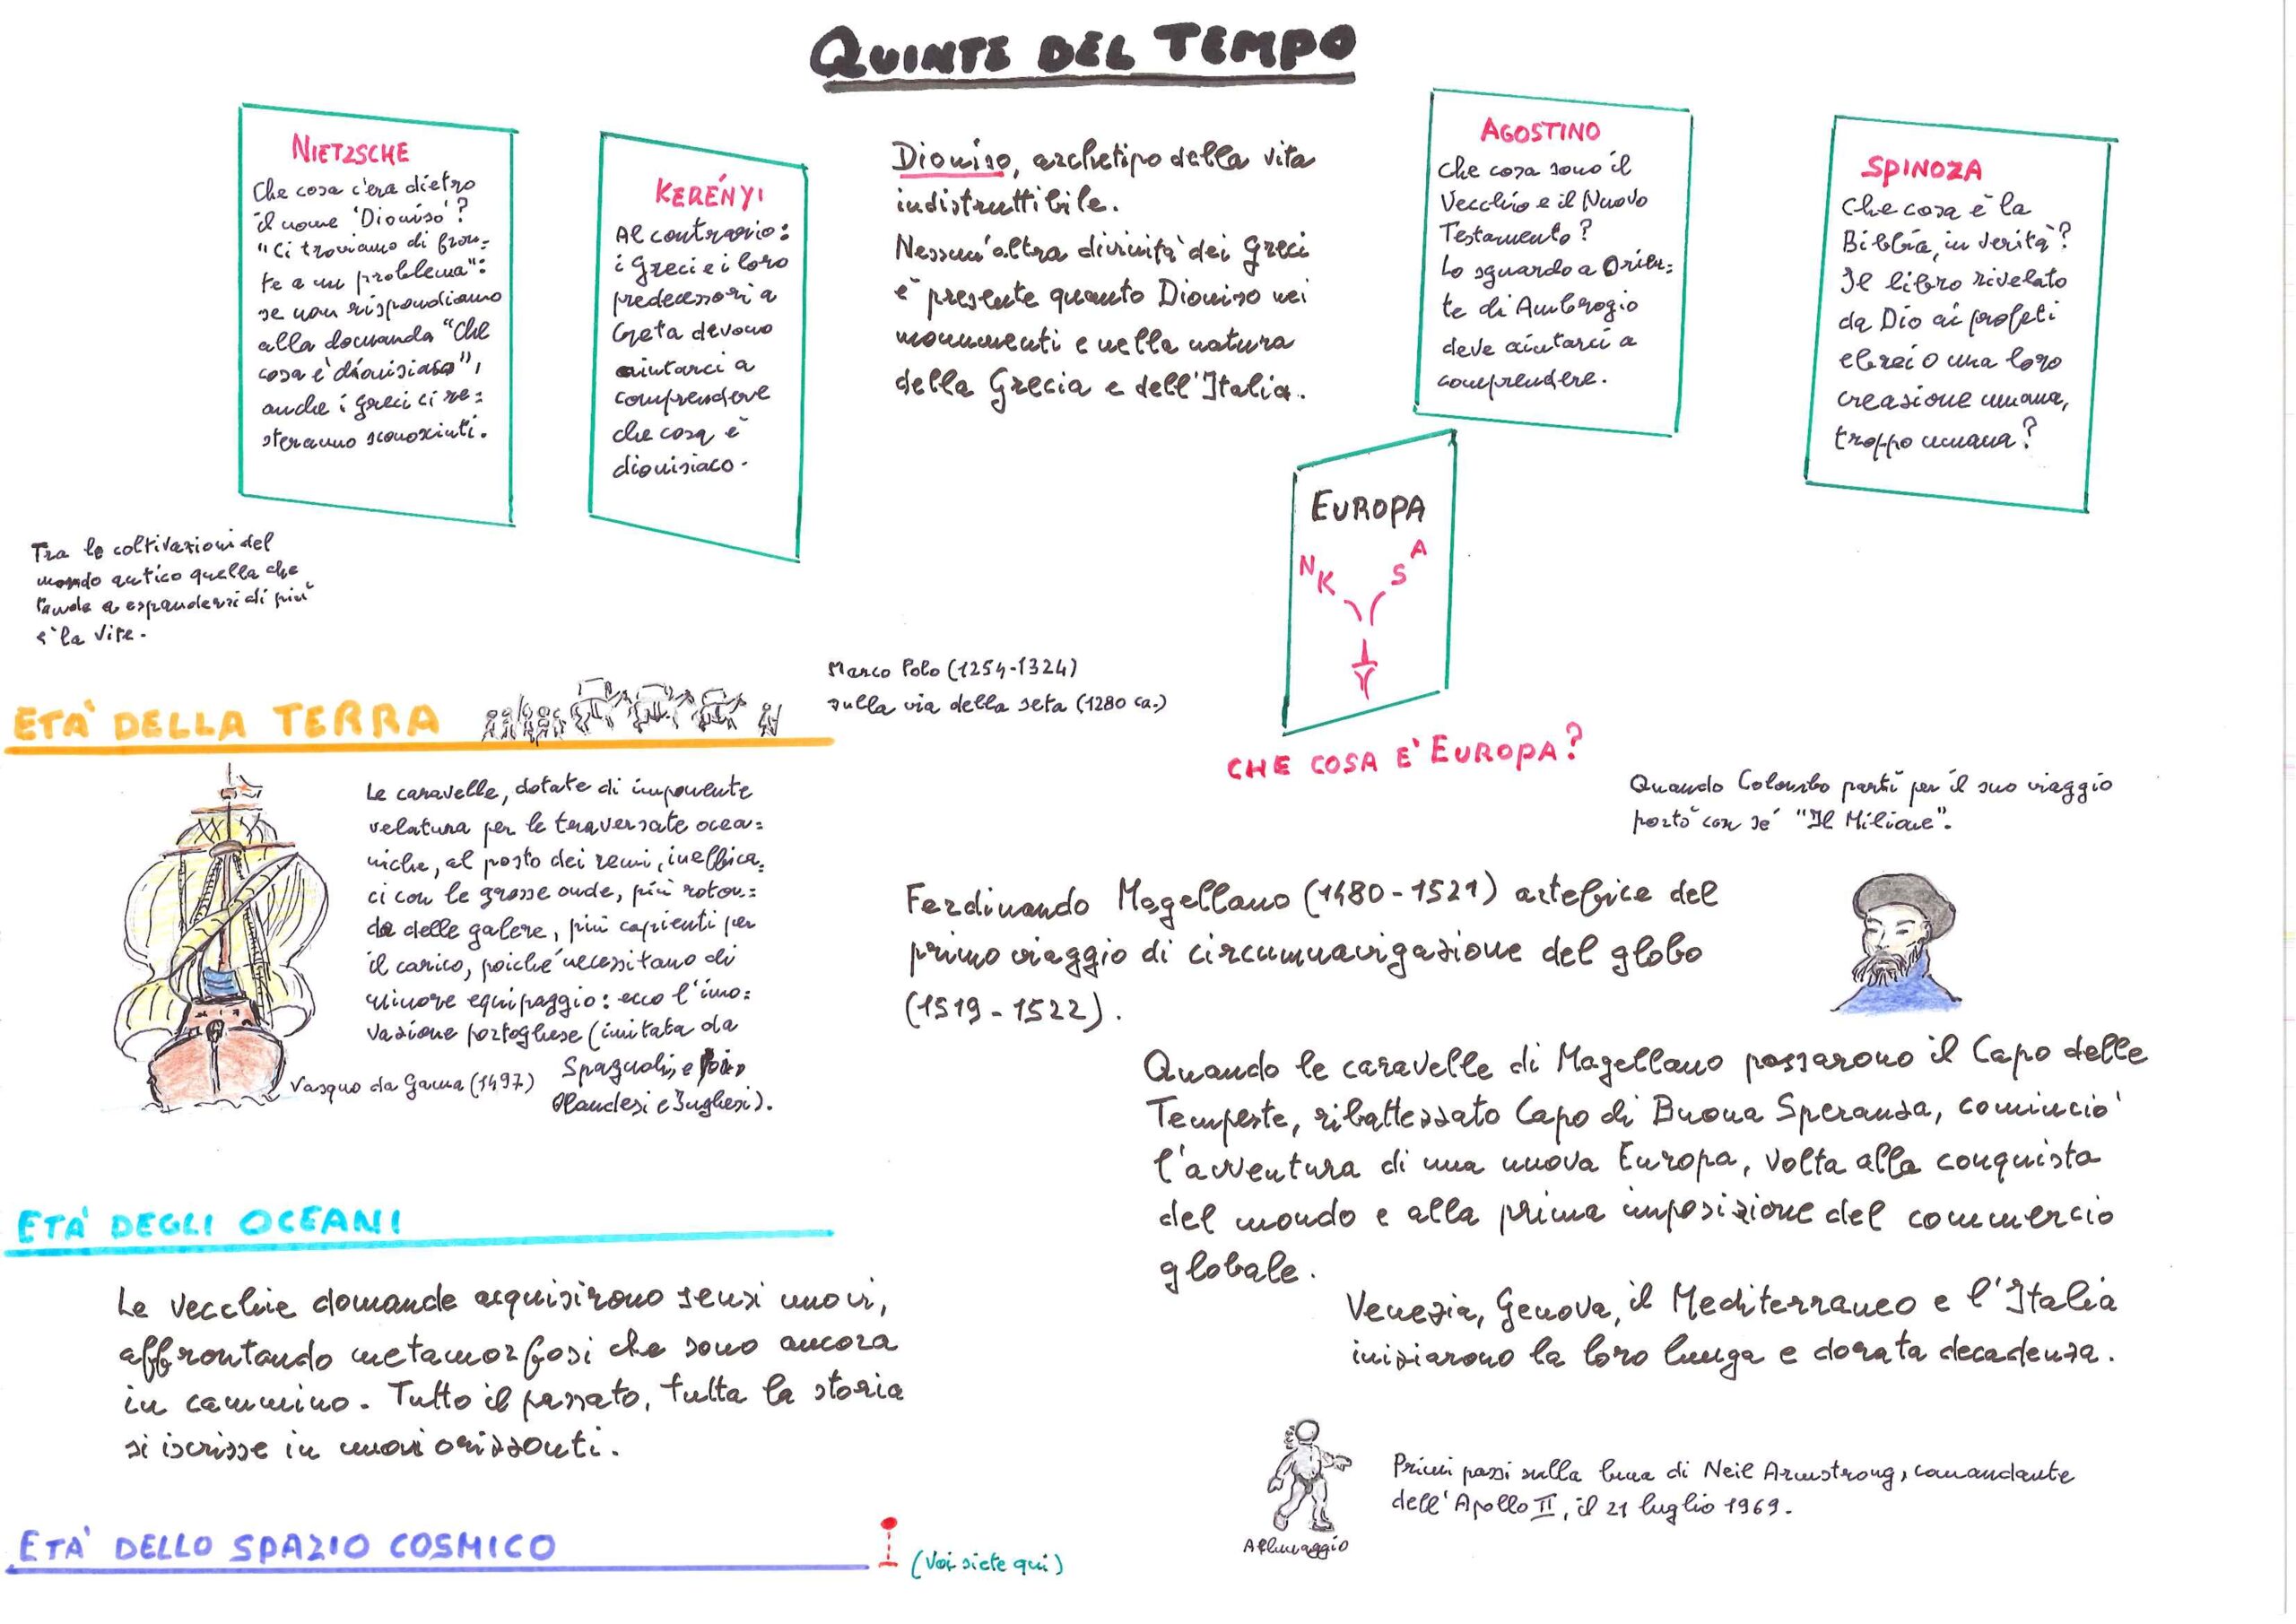 QUINTE DEL TEMPO
NIETZSCHE
Che cosa c'era dietro
il nome 'Dioniso'?
"Ci troviamo di fron=
te a un problema":
se non rispondiamo
alla domanda "che
cosa è dionisiaco",
anche i greci ci re=
steranno sconosciuti.
KERÉNYI
Al contrario:
i Greci e i loro
predecessori a
Creta devono
aiutarci a
comprendere
che cosa è
dionisiaco.
Dioniso, archetipo della vita
indistruttibile.
Nessun'altra divinità dei Greci
è presente quanto Dioniso nei
monumenti e nella natura
della Grecia e dell'Italia.
AGOSTINO
Che cosa sono il
Vecchio e il Nuovo
Testamento?
Lo sguardo a Orien=
te di Ambrogio
deve aiutarci a
comprendere.
SPINOZA
Che cosa è la
Bibbia, in verità?
Il libro rivelato
da Dio ai profeti
ebrei o una loro
creazione umana,
troppo umana?
EUROPA
N K S A
CHE COSA E' EUROPA?
Tra le coltivazioni del
mondo antico quella che
tende a espandersi di più
è la vite.
ETA' DELLA TERRA
Marco Polo (1254-1324)
sulla via della seta (1280 ca.)
Le caravelle, dotate di imponente
velatura per le traversate ocea=
niche, al posto dei remi, ineffica=
ci con le grosse onde, più roton=
de delle galere, più capienti per
il carico, poiché necessitano di
minore equipaggio: ecco l'inno=
vazione portoghese (imitata da
Spagnoli, e poi
Olandesi e Inglesi).
Vasquo da Gama (1497)
Quando Colombo partì per il suo viaggio
portò con sé "Il Milione".
Ferdinando Magellano (1480-1521) artefice del
primo viaggio di circumnavigazione del globo
(1519-1522).
Quando le caravelle di Magellano passarono il Capo delle
Tempeste, ribattezzato Capo di Buona Speranza, cominciò
l'avventura di una nuova Europa, volta alla conquista
del mondo e alla prima imposizione del commercio
globale.
Venezia, Genova, il Mediterraneo e l'Italia
iniziarono la loro lunga e dorata decadenza.
ETA' DEGLI OCEANI
Le vecchie domande acquisirono sensi nuovi,
affrontando metamorfosi che sono ancora
in cammino. Tutto il passato, tutta la storia
si iscrisse in nuovi orizzonti.
Allunaggio
Primi passi sulla luna di Neil Armstrong, comandante
dell'Apollo II, il 21 luglio 1969.
ETA' DELLO SPAZIO COSMICO
(Voi siete qui)